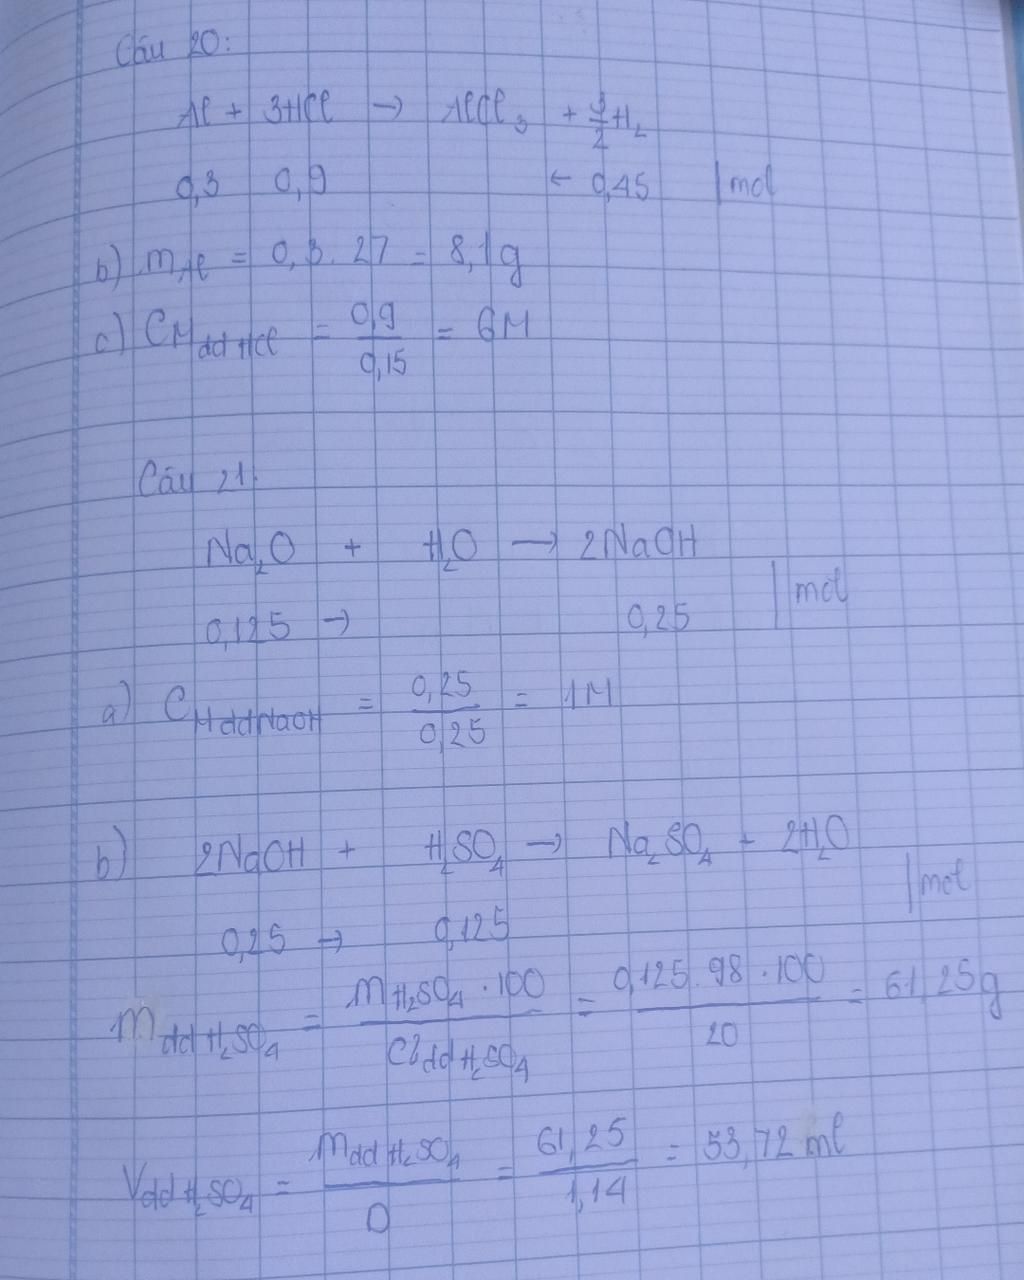 Câu 20:
Al + 3HCl → AlCl₃ + 3/2 H₂
0,3 0,9 ← 0,45 | mol
b) mAl = 0,3 . 27 = 8,1g
c) CM dd HCl = 0,9 / 0,15 = 6M
Câu 21.
Na₂O + H₂O → 2NaOH
0,125 → 0,25 | mol
a) CM ddNaOH = 0,25 / 0,25 = 1M
b) 2NaOH + H₂SO₄ → Na₂SO₄ + 2H₂O
0,25 → 0,125 | mol
mdd H₂SO₄ = mH₂SO₄ . 100 / C%dd H₂SO₄ = 0,125 . 98 . 100 / 20 = 61,25g
Vdd H₂SO₄ = mdd H₂SO₄ / D = 61,25 / 1,14 = 53,72 ml